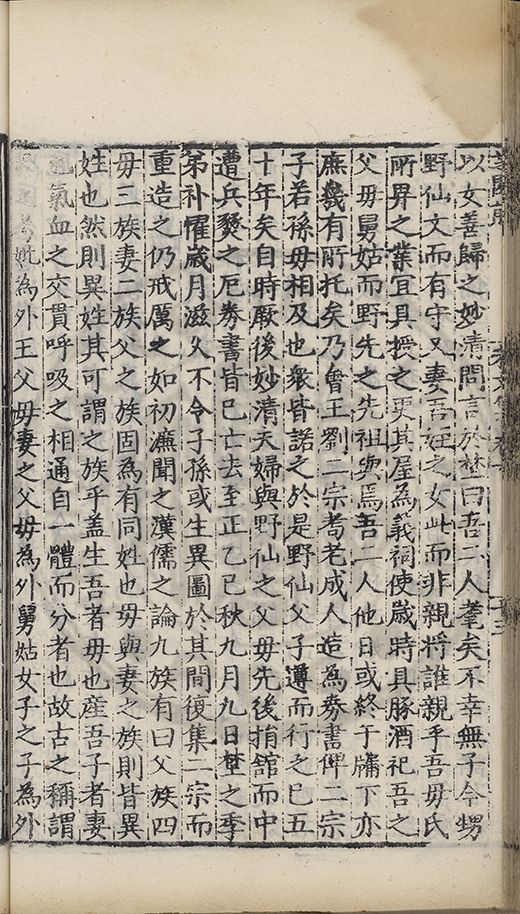 以女善歸之妙清問言於埜曰吾二人耄矣不幸無子今甥
野仙文而有守又妻吾姪之女此而非親將誰親乎吾毋氏
所畀之業宜具授之更其屋為義祠使歲時具豚酒祀吾之
父毋舅姑而野先之先祖與焉吾二人他日或終于牖下亦
庶幾有所托矣乃會王劉二宗耆老成人造為券書俾二宗
子若孫毋相及也衆皆諾之於是野仙父子遵而行之已五
十年矣自時厥後妙清夫婦與野仙之父毋先後捐舘而中
遭兵燹之厄券書皆已亡去至正乙巳秋九月九日埜之季
弟補懼歲月滋久不令子孫或生異圖於其間復集二宗而
重造之仍戒厲之如初濂聞之漢儒之論九族有曰父族四
毋三族妻二族父之族固為有同姓也毋與妻之族則皆異
姓也然則異姓其可謂之族乎盖生吾者毋也産吾子者妻
也氣血之交貫呼吸之相通自一體而分者也故古之稱謂
為外王父毋妻之父毋為外舅姑女子之子為外